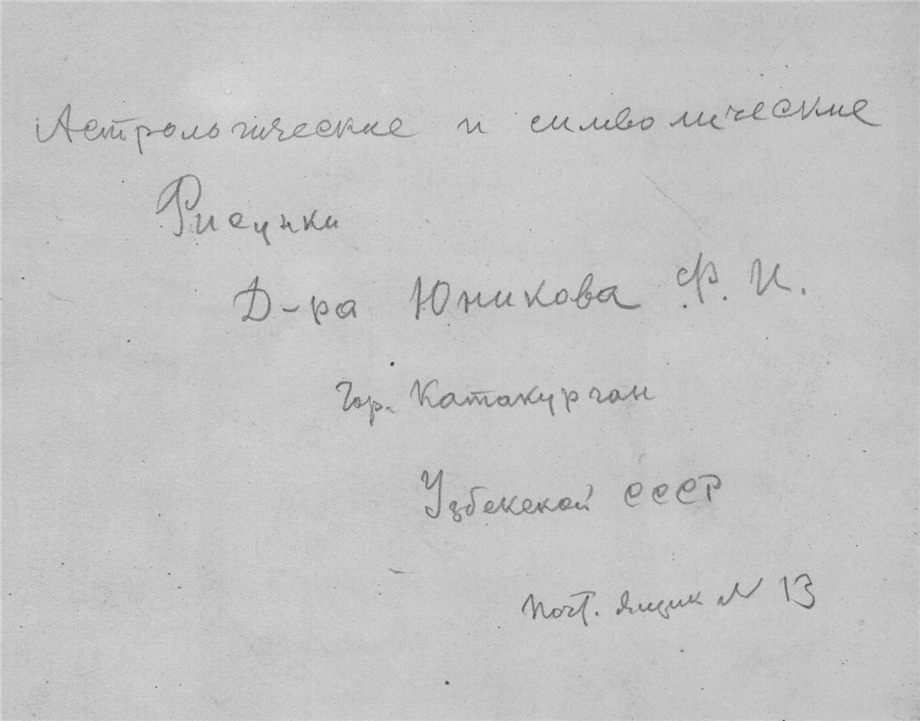 Астрологические и символические
Рисунки
Д-ра Юникова Ф. И.
Гор. Катакурган
Узбекской СССР
почт. ящик № 13